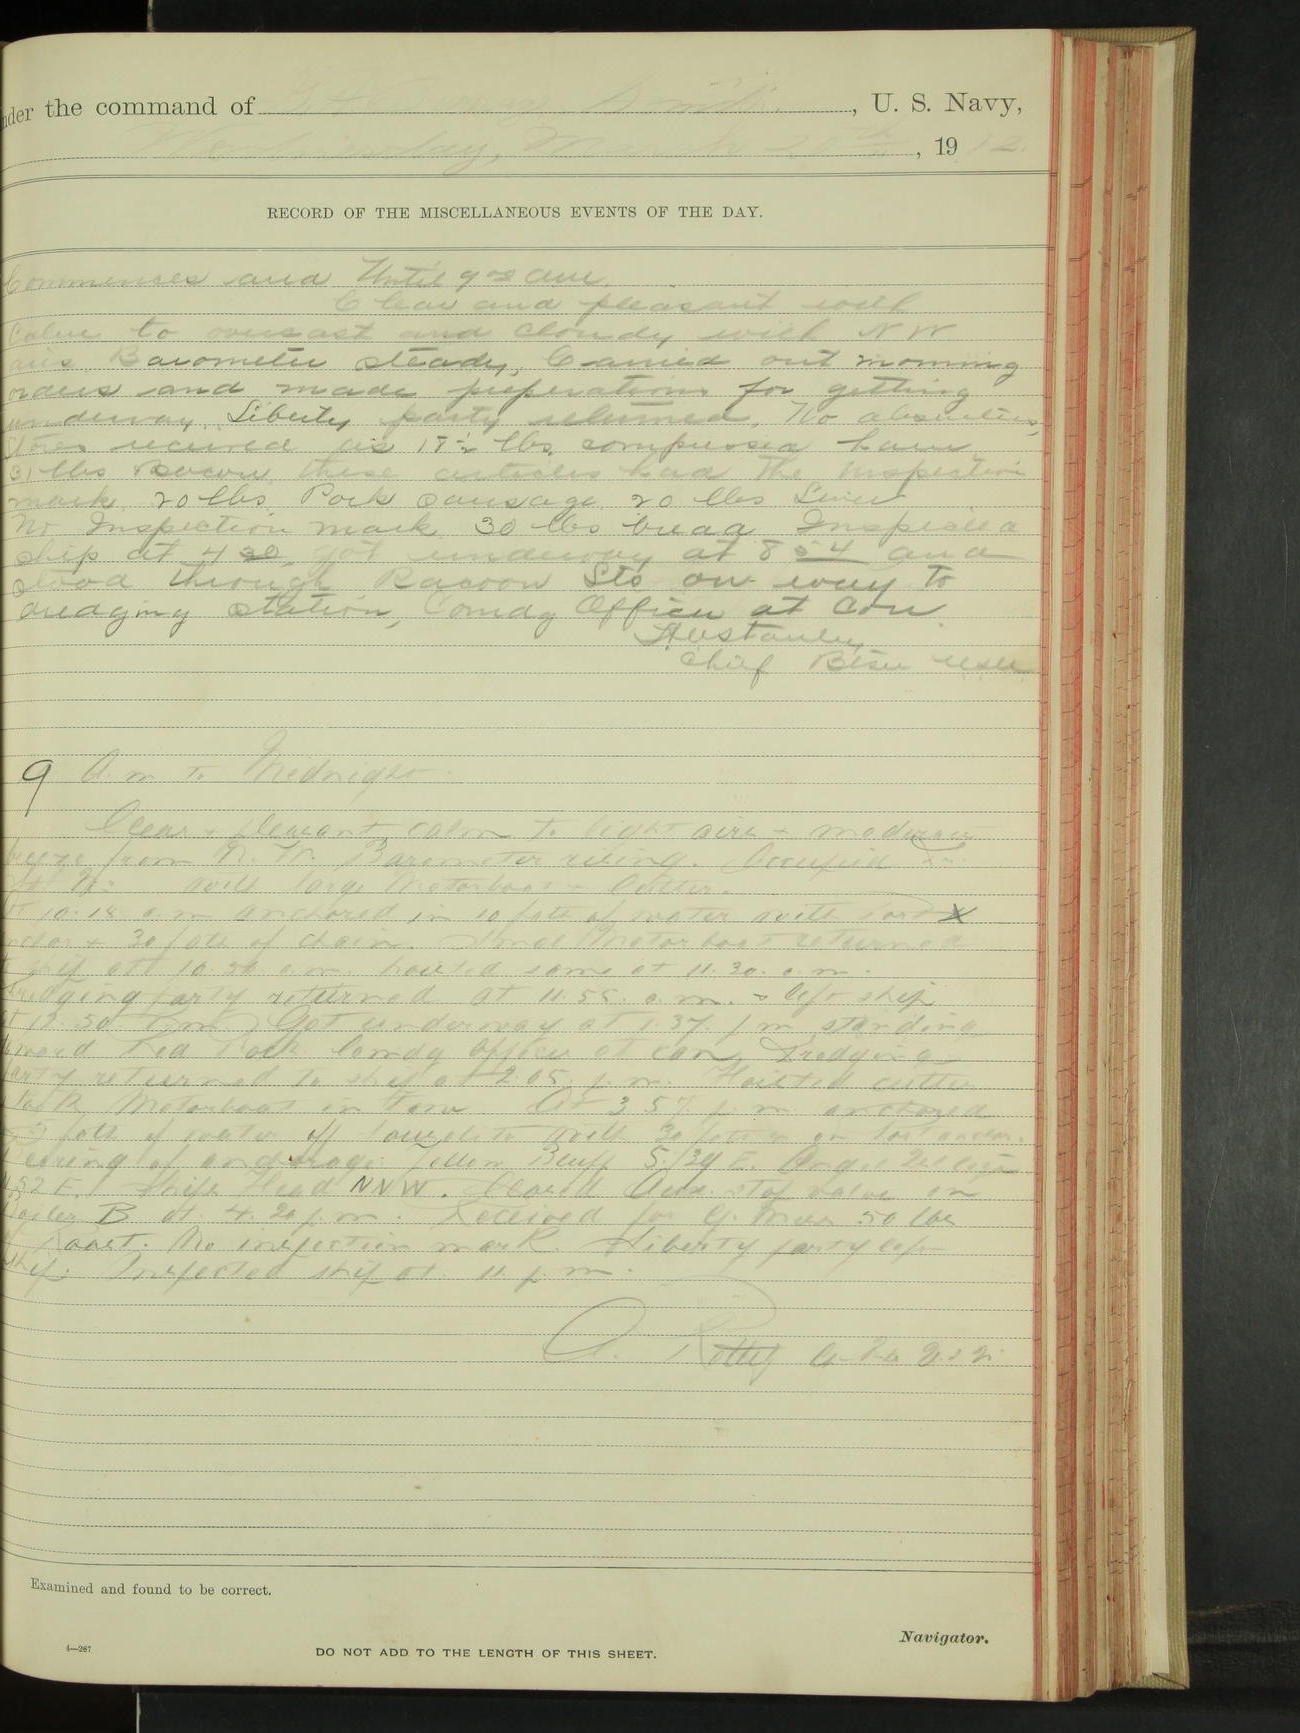 under the command of , U. S. Navy,
Wednesday, March 20th, 1912.
RECORD OF THE MISCELLANEOUS EVENTS OF THE DAY.
Commences and Until 9 00 am.
Clear and pleasant with
Calm to overcast and cloudy with N W
airs. Barometer steady, Carried out morning
orders and made preparations for getting
underway. Liberty party returned. No absentees,
Stores received as 18 1/2 lbs. compressed ham
31 lbs Bacon, these articles had the Inspection
mark. 20 lbs. Pork sausage 20 lbs Liver
No Inspection mark 30 lbs bread Inspected
ship at 4 30 got underway at 8 54 and
stood through Racoon Sts on way to
dredging station, Comdg Officer at Con.
Chief Btsn USN
9 A. m to Midnight
Clear + pleasant, calm to light airs + moderate
breeze from N. W. Barometer rising. Occupied
with large Motorboat + Cutter.
At 10.18 a.m anchored in 10 fath of water with port X
anchor + 30 fath of chain. Motorboat returned
to ship at 10.50 a.m. hoisted same at 11.30. a.m.
Dredging party returned at 11.55. a.m. + left ship
at 12.50 P.m. Got underway at 1.37 p m standing
toward Red Rock Comdg officer at con, Dredging
party returned to ship at 2.05. p.m. Hoisted cutter
took Motorboat in tow At 3 57. p m. anchored
fath of water off Sausalito with 30 fathom on Port anchor.
Bearing of anchorage Yellow Bluff S./39 E. Angel
N 52 E. Ships Head NNW. Closed Aux. stop valve on
Boiler B at 4.20 p.m. Received for G. Mess 50 lbs
Roast. No inspection mark. Liberty party left
ship. Inspected ship at 11 p.m.
Examined and found to be correct.
Navigator.
4—267
DO NOT ADD TO THE LENGTH OF THIS SHEET.